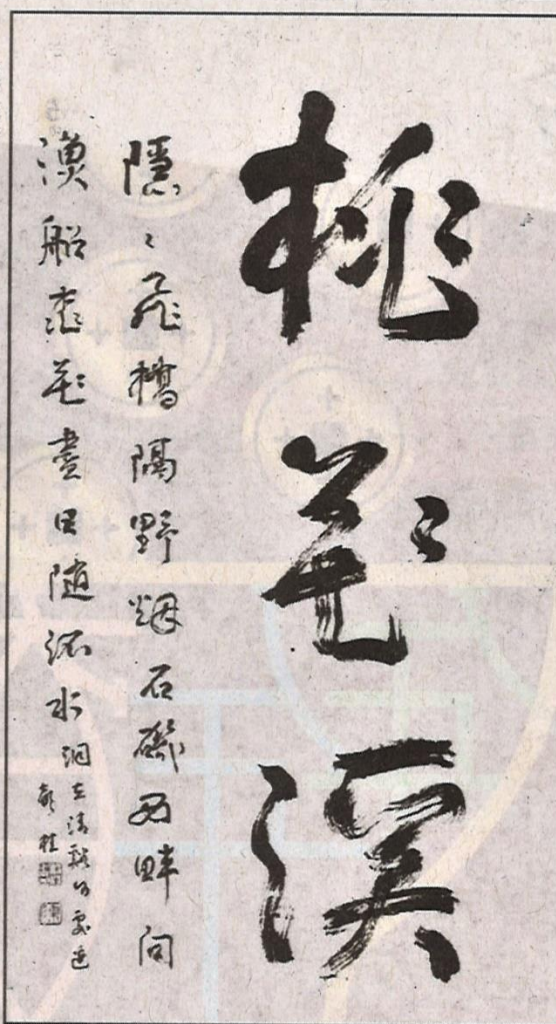 桃花溪
隱〻飛橋隔野煙石磯西畔問
漁船桃花盡日隨流水洞在清谿何處邊